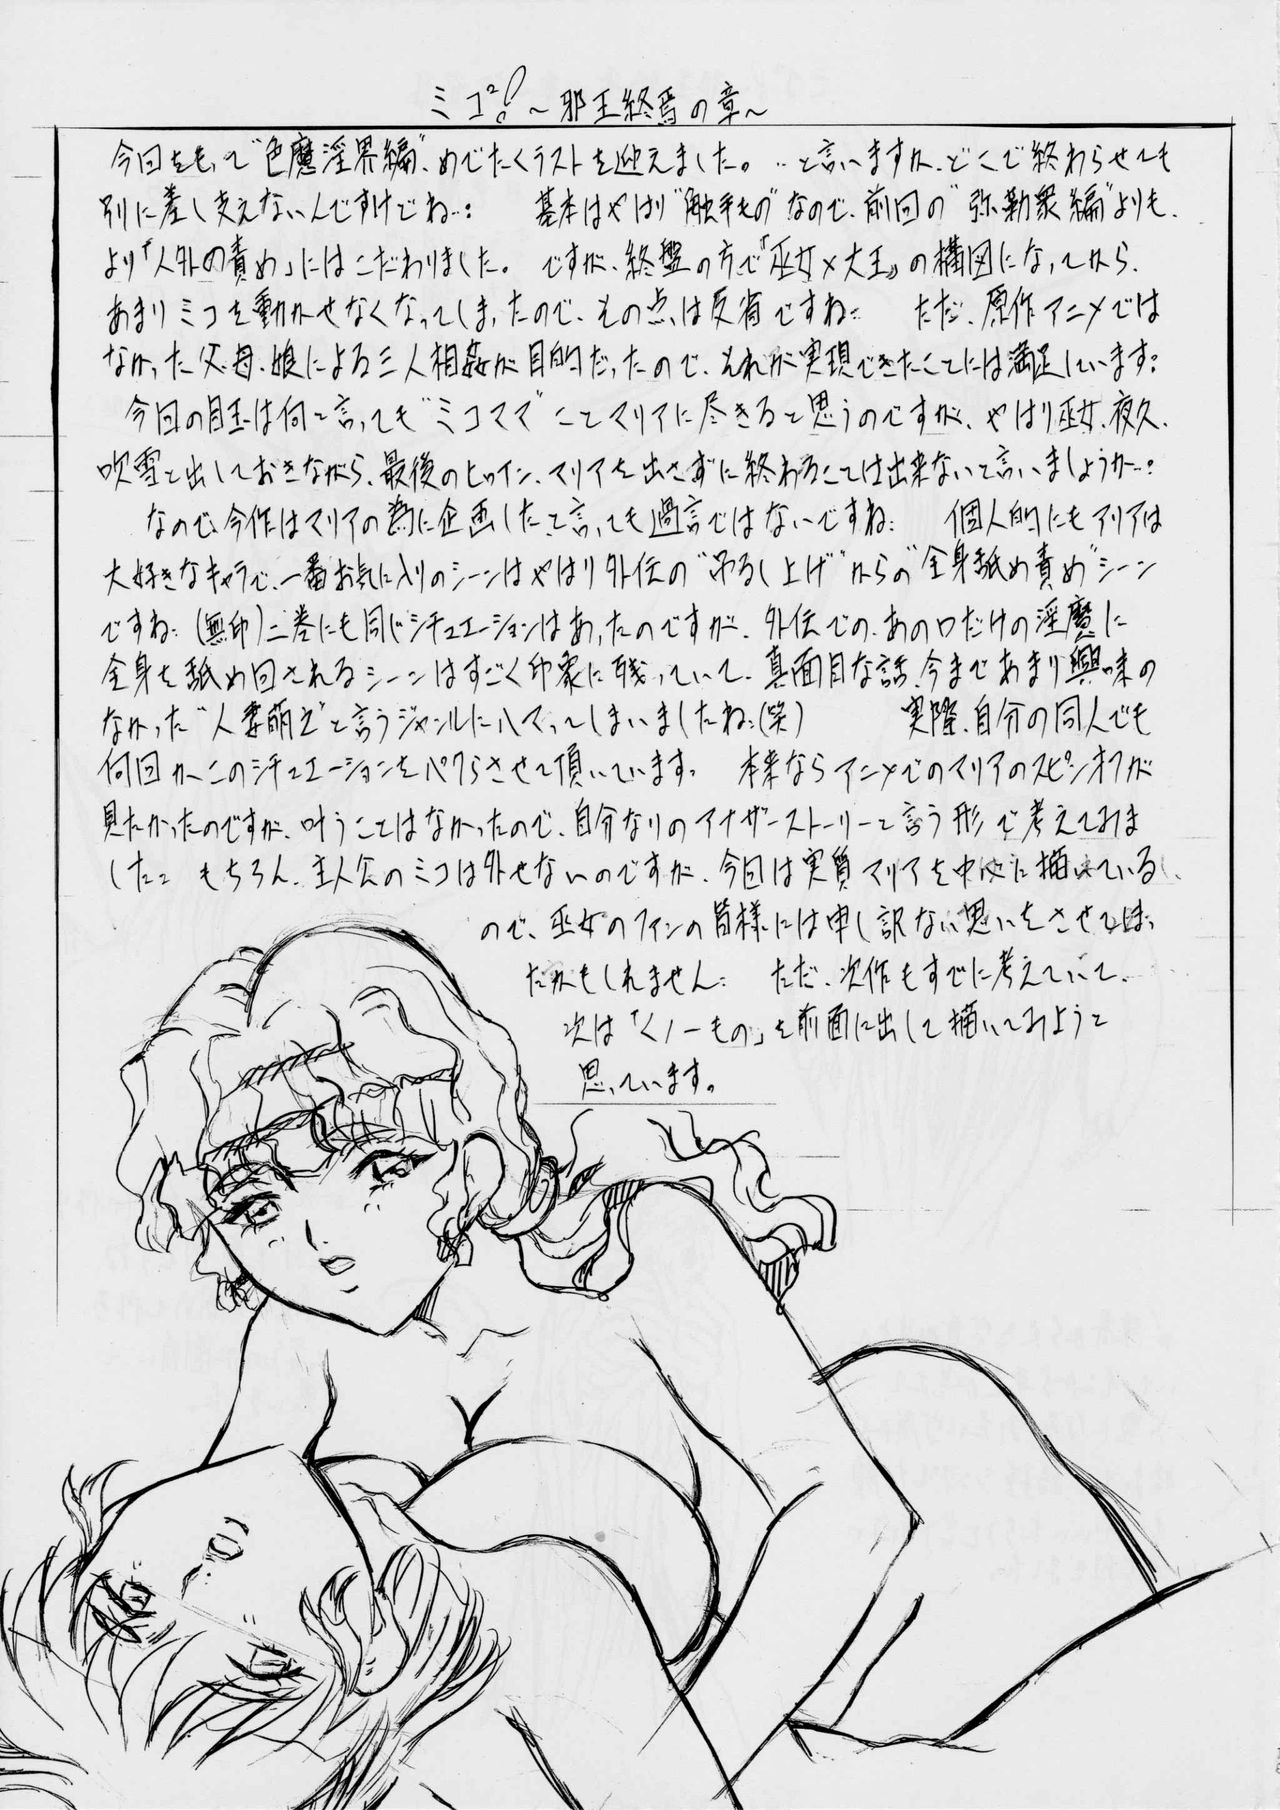 ミコ²!～邪王終焉の章～
今回をもって"色魔淫界編"、めでたくラストを迎えました。…と言いますか、どこで終わらせても
別に差し支えないんですけどね…:　基本はやはり"触手もの"なので、前回の"弥勒衆編"よりも、
より「人外の責め」にはこだわりました。ですが、終盤の方で『巫女×大王』の構図になってから、
あまりミコを動かせなくなってしまったので、その点は反省ですね:　ただ、原作アニメでは
なかった父、母、娘による三人相姦が目的だったので、それが実現できたことには満足しています:
今回の目玉は何と言っても"ミコママ"ことマリアに尽きると思うのですが、やはり巫女、夜久、
吹雪と出しておきながら、最後のヒロイン、マリアを出さずに終わることは出来ないと言いましょうか…:
なので、今作はマリアの為に企画したと言っても過言ではないですね:　個人的にもマリアは
大好きなキャラで、一番お気に入りのシーンはやはり外伝の"吊るし上げ"からの"全身舐め責め"シーン
ですね:(無印)二巻にも同じシチュエーションはあったのですが、外伝での、あの口だけの淫魔に
全身を舐め回されるシーンはすごく印象に残っていて、真面目な話、今まであまり興味の
なかった"人妻萌え"と言うジャンルにハマってしまいましたね:(笑)　実際、自分の同人でも
何回か、このシチュエーションをパクらさせて頂いています:　本来ならアニメでのマリアのスピンオフが
見たかったのですが、叶うことはなかったので、自分なりのアナザーストーリーと言う形で考えてみま
した:　もちろん、主人公のミコは外せないのですが、今回は実質マリアを中心に描いている
ので、巫女のファンの皆様には申し訳ない思いをさせてしまっ
たかもしれません:　ただ、次作もすでに考えていて、
次は「くノ一もの」を前面に出して描いてみようと
思っています。